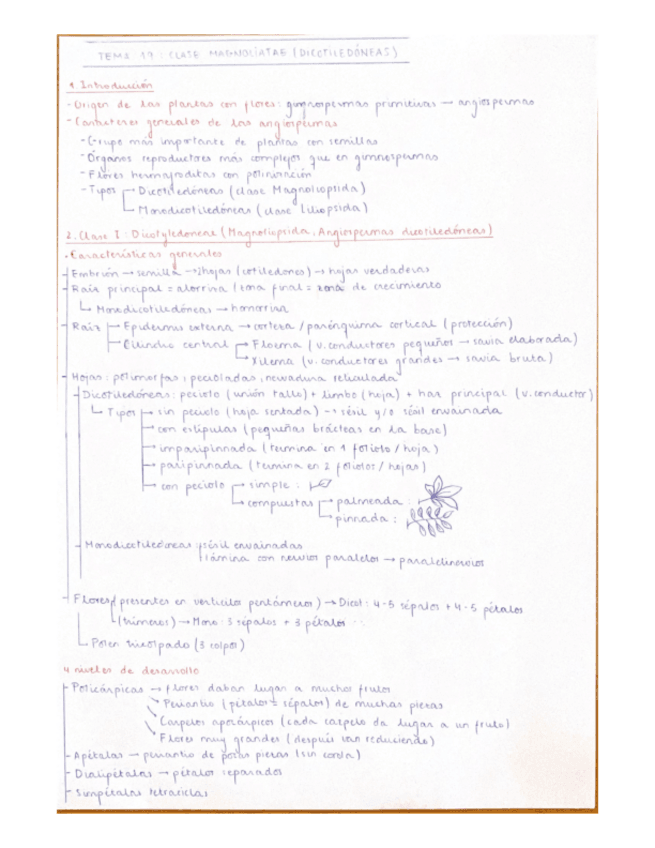 TEMA 19: CLASE MAGNOLIATAE (DICOTILEDÓNEAS)
1. Introducción
- Origen de las plantas con flores: gimnospermas primitivas → angiospermas
- Caracteres generales de las angiospermas
- Grupo más importante de plantas con semillas
- Órganos reproductores más complejos que en gimnospermas
- Flores hermafroditas con polinización
- Tipos Dicotiledóneas (clase Magnoliopsida)
Monodicotiledóneas (clase Liliopsida)
2. Clase I: Dicotyledoneae (Magnoliopsida, Angiospermas dicotiledóneas)
• Características generales
Embrión → semilla → 2 hojas (cotiledones) → hojas verdaderas
Raíz principal = alorriza / zona final = zona de crecimiento
Monodicotiledóneas → homorriza
Raíz Epidermis externa → corteza / parénquima cortical (protección)
Cilindro central Floema (v. conductores pequeños → savia elaborada)
Xilema (v. conductores grandes → savia bruta)
Hojas: polimorfas, pecioladas, nervadura reticulada
Dicotiledóneas: peciolo (unión tallo) + limbo (hoja) + haz principal (v. conductor)
Tipos sin peciolo (hoja sentada) → sésil y/o sésil envainada
con estípulas (pequeñas brácteas en la base)
imparipinnada (termina en 1 foliolo / hoja)
paripinnada (termina en 2 foliolos / hojas)
con peciolo simple:
compuestas palmeada:
pinnada:
Monodicotiledóneas sésil envainadas
lámina con nervios paralelos → paralelinervios
Flores (presentes en verticilos pentámeros) → Dicot: 4-5 sépalos + 4-5 pétalos
(trímeros) → Mono: 3 sépalos + 3 pétalos
Polen tricolpado (3 colpos)
4 niveles de desarrollo
Policárpicas → flores daban lugar a muchos frutos
Periantio (pétalos = sépalos) de muchas piezas
Carpelos apocárpicos (cada carpelo da lugar a un fruto)
Flores muy grandes (después van reduciendo)
- Apétalas → periantio de pocas piezas (sin corola)
- Dialipétalas → pétalos separados
- Simpétalas tetraciclas